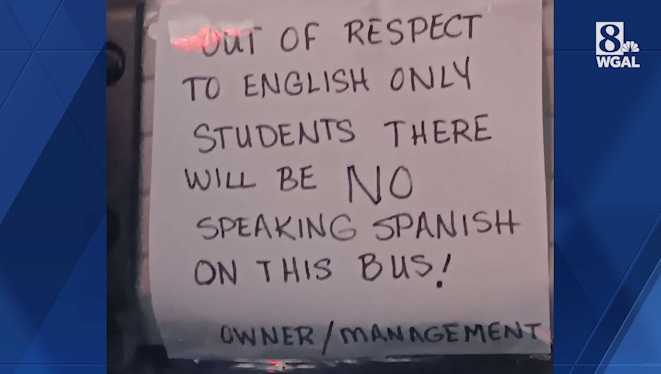 OUT OF RESPECT
TO ENGLISH ONLY
STUDENTS THERE
WILL BE NO
SPEAKING SPANISH
ON THIS BUS!
OWNER/MANAGEMENT
8
WGAL